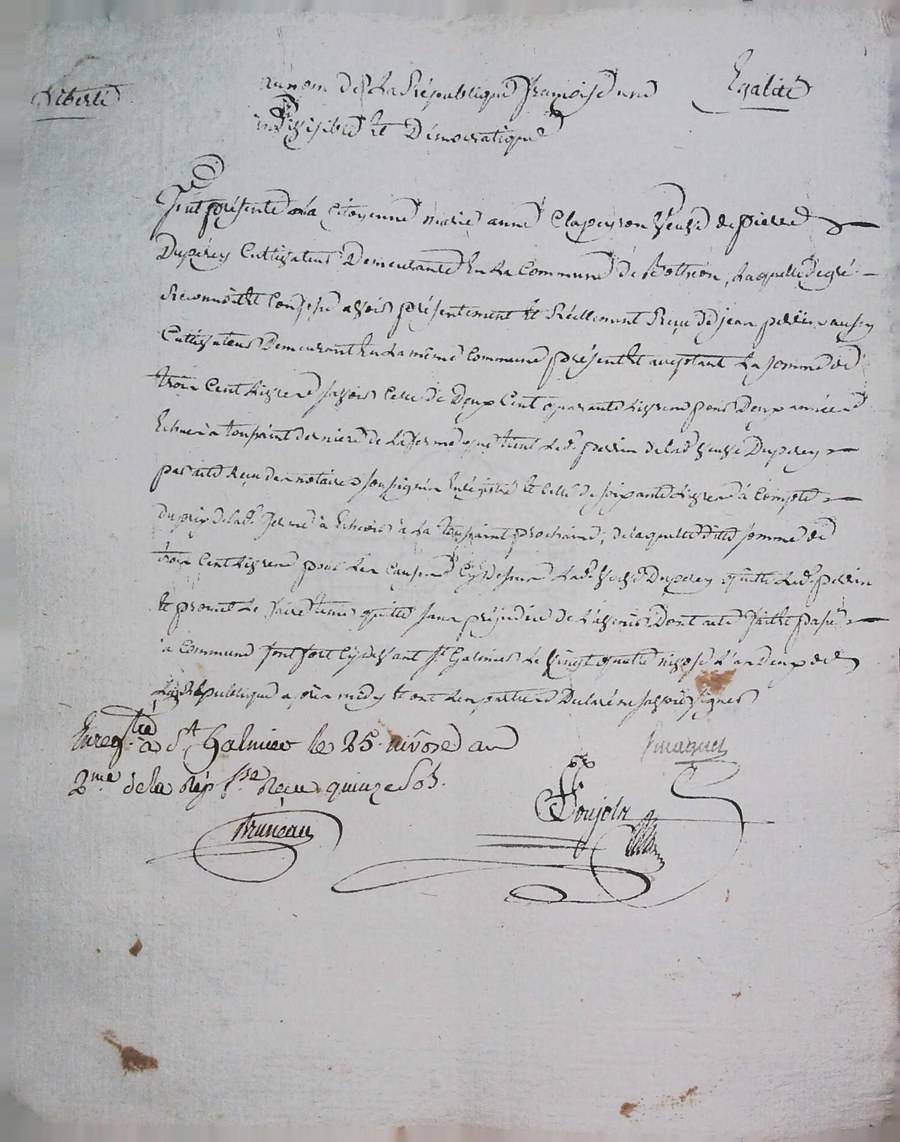 Liberté
au nom de La République françoise une
Egalité
indivisible et Démocratique
fut présente la Citoyenne marie anne Clapeyron veuve de pierre
Duperey Cultivateur Demeurante En La Commune de laquelle de gré
Reconnoit et Confesse avoir présentement et Réellement Reçu de jean perrin
Cultivateur Demeurant En La même Commune présent et acceptant La somme de
trois Cent Livres savoir Celle de Deux Cent quarante Livres pour Deux années
Echues à toussaint derniere de La ferme que tient Led. perrin de lad. veuve Duperey
par acte Reçu des notaires soussignés Enregistré et Celle de soixante Livres à Compte
Du prix de lad. ferme à Echoir à La toussaint prochaine, de laquelle dite somme de
trois Cent Livres pour Les Causes Cy dessus Lad. veuve Duperey quitte Led. perrin
et promet Le faire tenir quitte sans préjudice de L'avenir Dont acte fait et passé
à Commune font fort Cy devant st. Galmier Le vingt quatre nivose L'an deux de
La République après midy et ont Les parties Déclaré ne savoir signer
Enregtré à St Galmier le 25 nivôse an
2me de la Rép fse Reçu quinze Sols.
Bruneau
Poujols